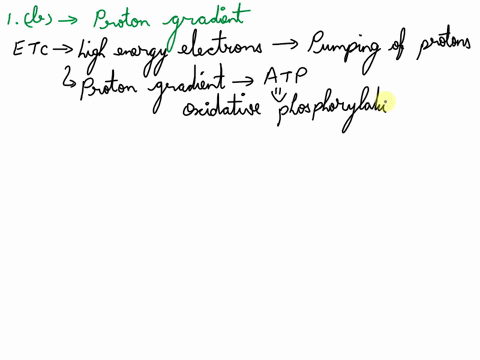 1. (b) → Proton gradient
ETC → high energy electrons → Pumping of protons
↳ Proton gradient → ATP
oxidative phosphorylati